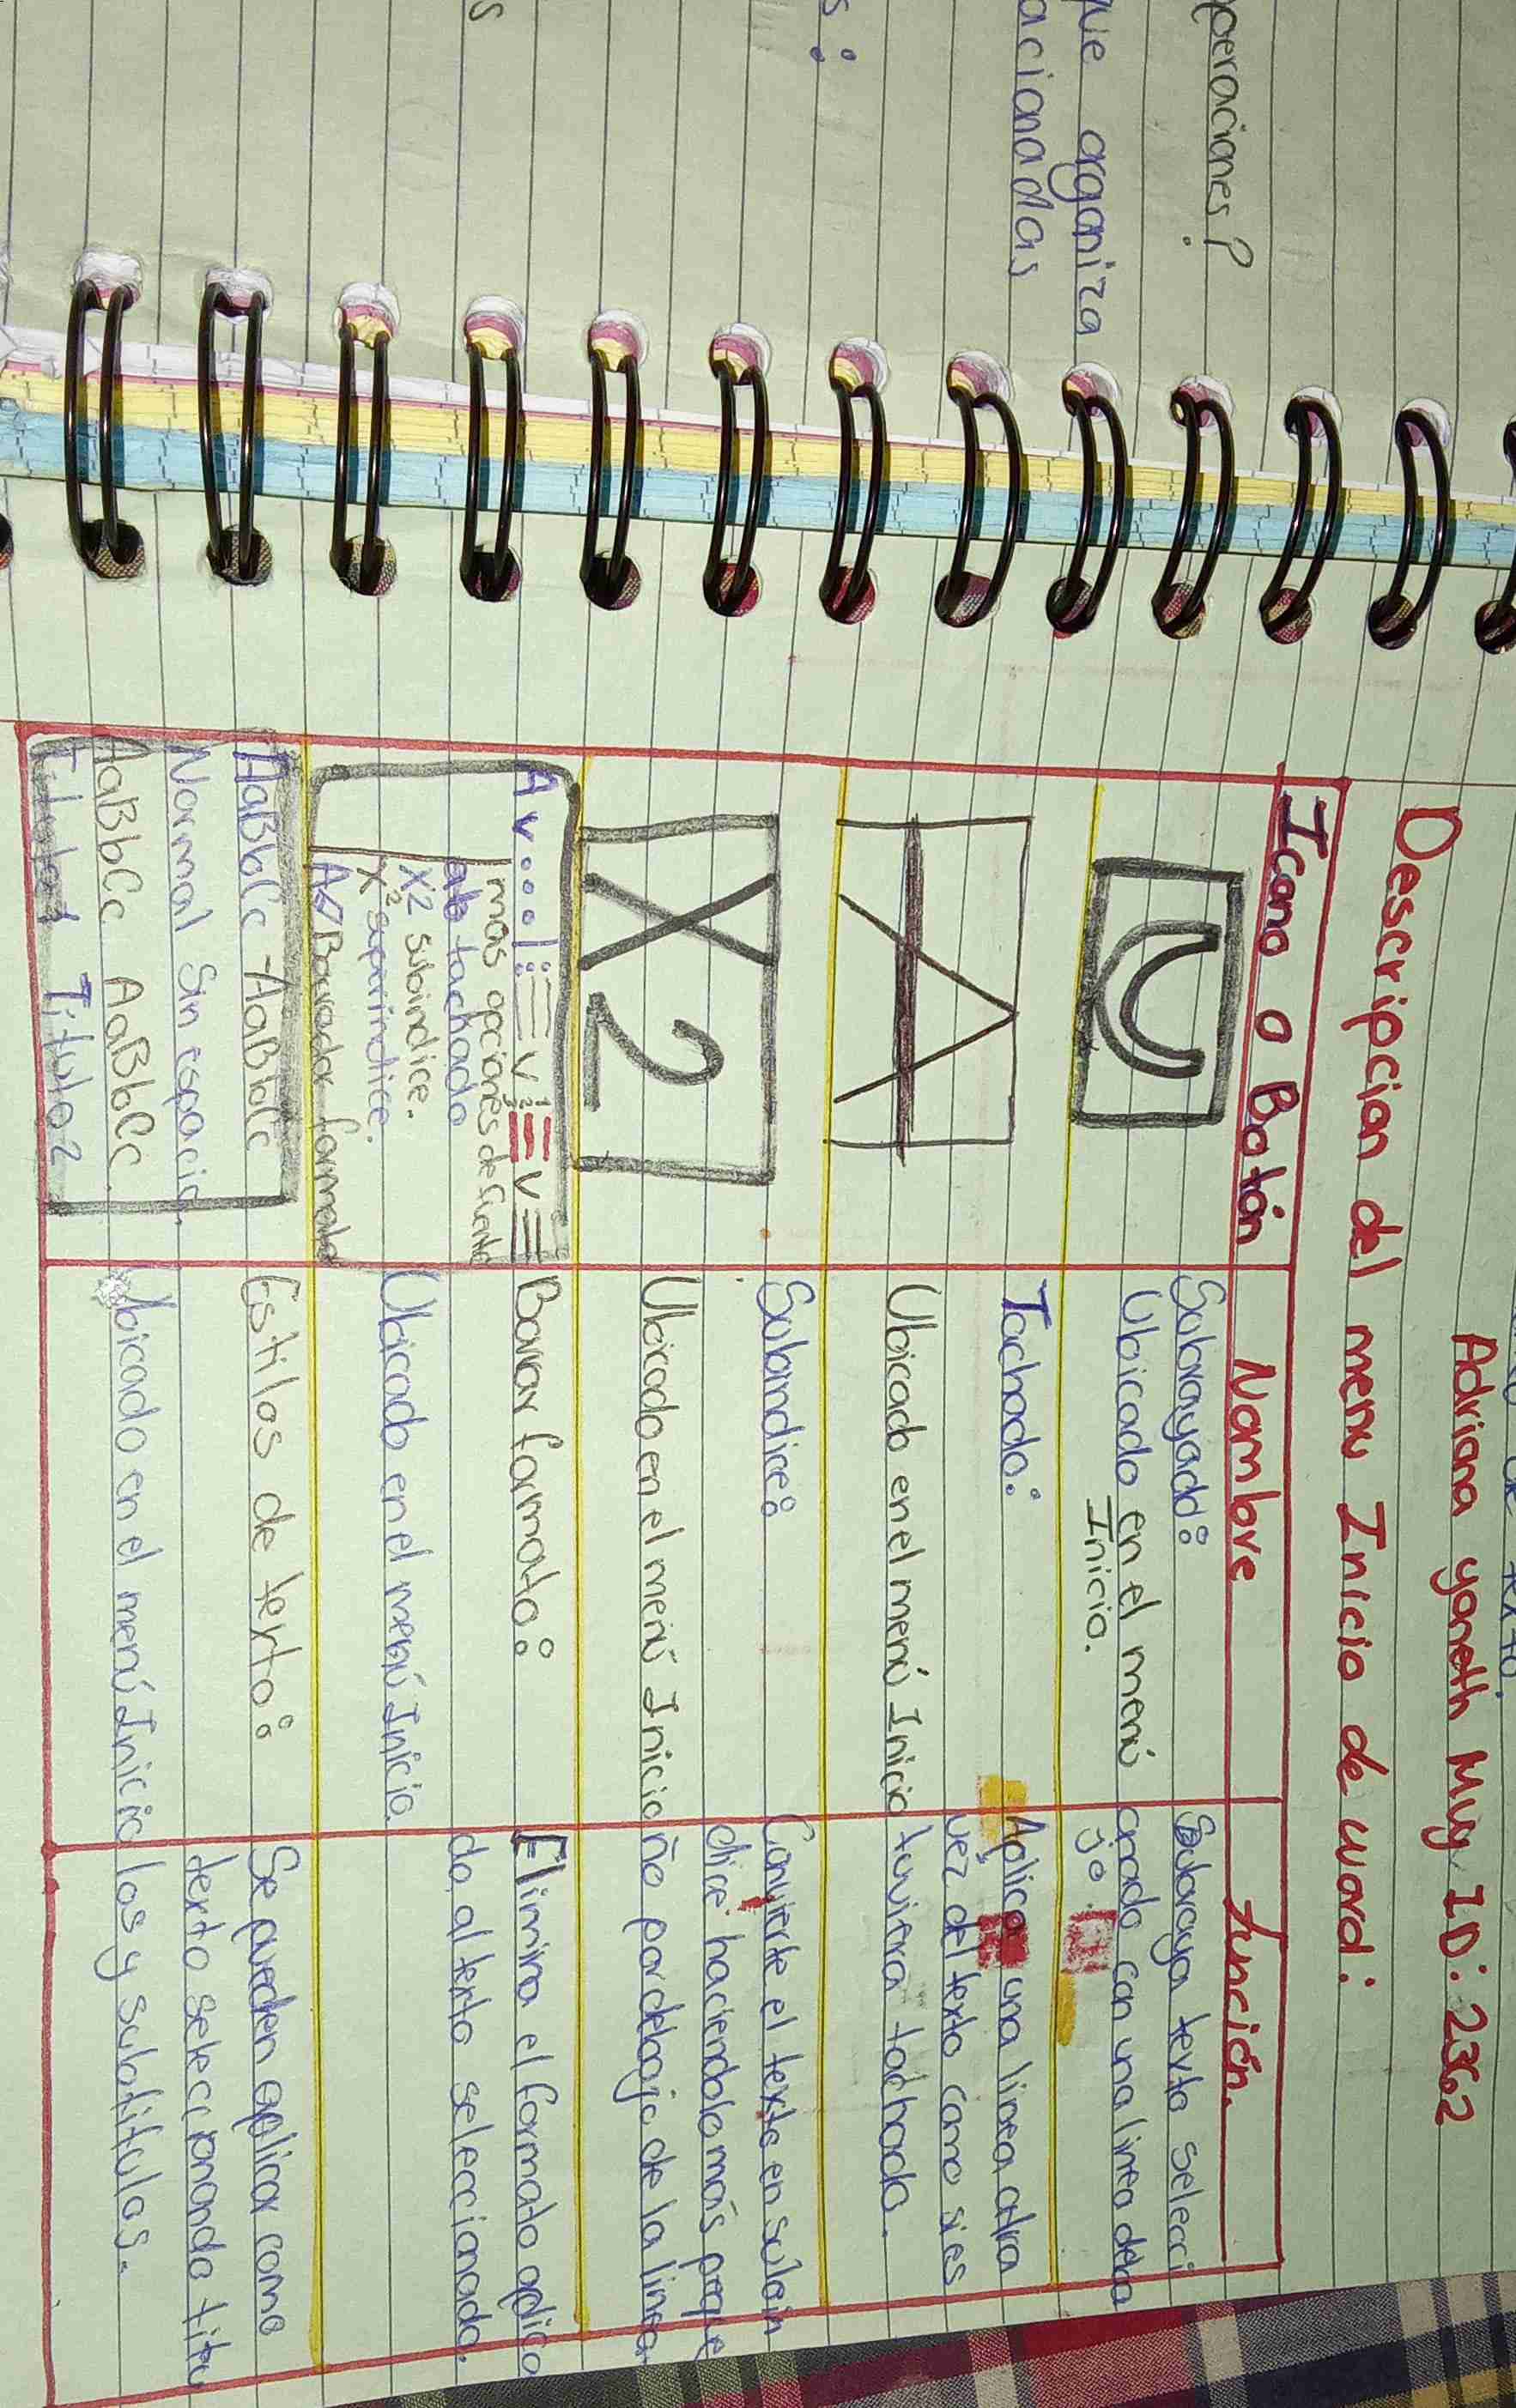 peraciones?
que organiza
acionadas
s:
s
Adriana yaneth Muy ID: 2362
Descripcion del menu Inicio de word:
Icono o Botón
Nombre
función.
U
Subrayado:
Ubicado en el menú
Inicio.
Subraya texto selecci
onado con una linea deba
jo.
A
Tachado:
Ubicado en el menú Inicio
Aplica una linea atra
vez del texto como si es
tuviera tachado.
X2
Subindice:
Ubicado en el menú Inicio
Convierte el texto en subin
dice haciendolo más peque
ño por debajo de la linea
A v...
mas opciones de fuente
ab tachado
X2 subindice.
X² superindice.
A Borrador formato
Borrar formato:
Ubicado en el menú Inicio.
Elimina el formato aplica
do, al texto seleccionado.
AaBbCc-AaBbCc
Normal Sin espacio.
AaBbCc AaBbCc
Titulo 1 Titulo 2
Estilos de texto:
Ubicado en el menú Inicio
Se pueden aplicar como
texto seleccionando titu
los y subtitulos.